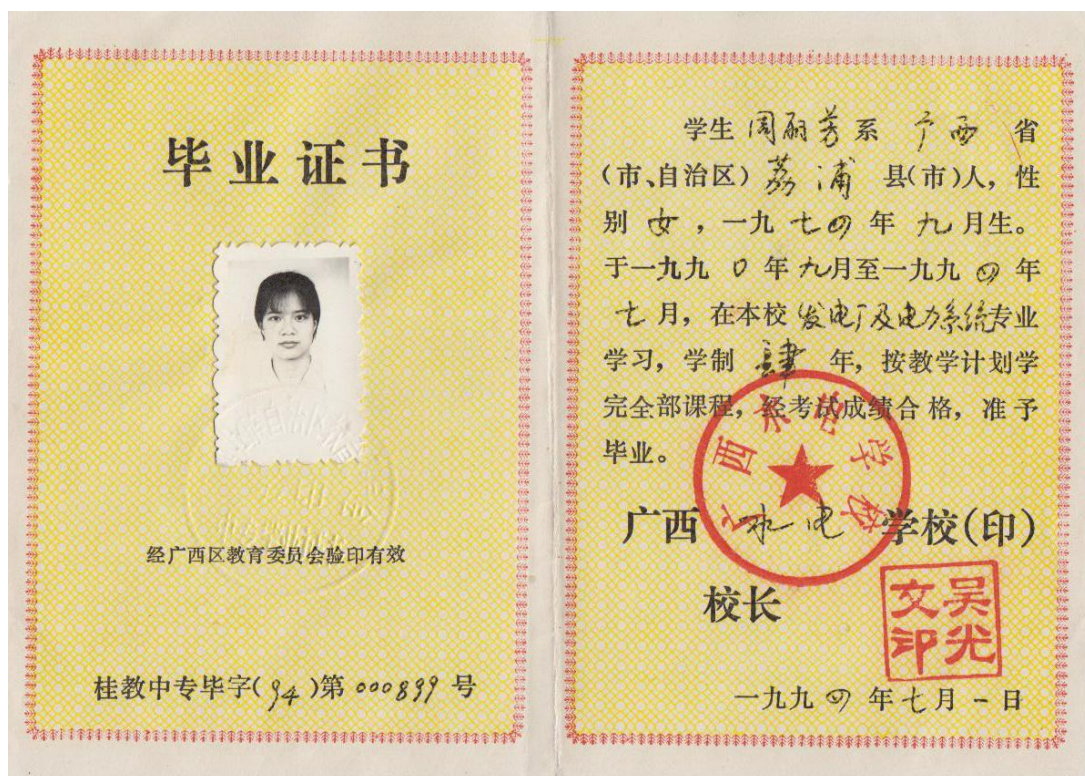 毕业证书
经广西区教育委员会验印有效
桂教中专毕字(94)第000899号
学生 周丽芳 系 广西 省
(市、自治区) 荔浦 县(市)人, 性
别 女 , 一九七四年 九月生。
于一九九0年九月至一九九四年
七月, 在本校 发电厂及电力系统专业
学习, 学制 肆 年, 按教学计划学
完全部课程, 经考试成绩合格, 准予
毕业。
广西水电学校
广西 水电 学校(印)
校长
吴光文印
一九九四年七月一日